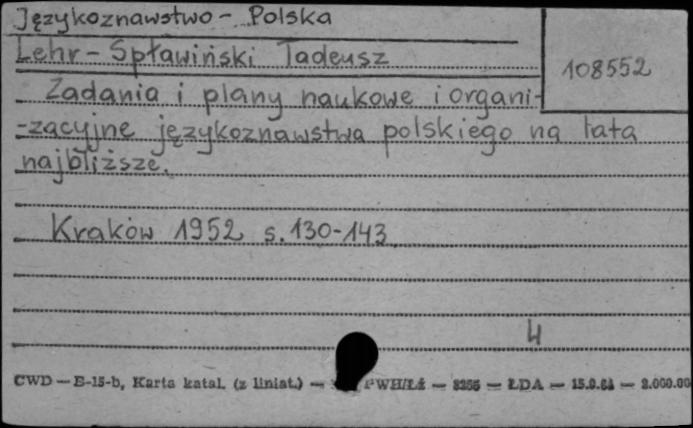 Językoznawstwo - Polska
Lehr-Spławiński Tadeusz
108552
Zadania i plany naukowe i organi-
-zacyjne językoznawstwa polskiego na lata
najbliższe.
Kraków 1952 s. 130-143
4
CWD — E-15-b, Karta katal. (z liniat.) — PWH/Łź — 8255 — ŁDA — 15.9.61 — 2.000.00